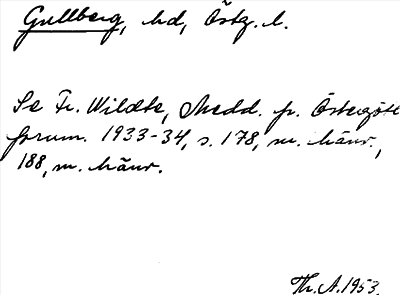 Gullberg, hd, Östg. l.
Se Fr. Wildte, Medd. fr. Östergötl
fornm. 1933-34, s. 178, m. hänv.,
188, m. hänv.
Th. A. 1953.